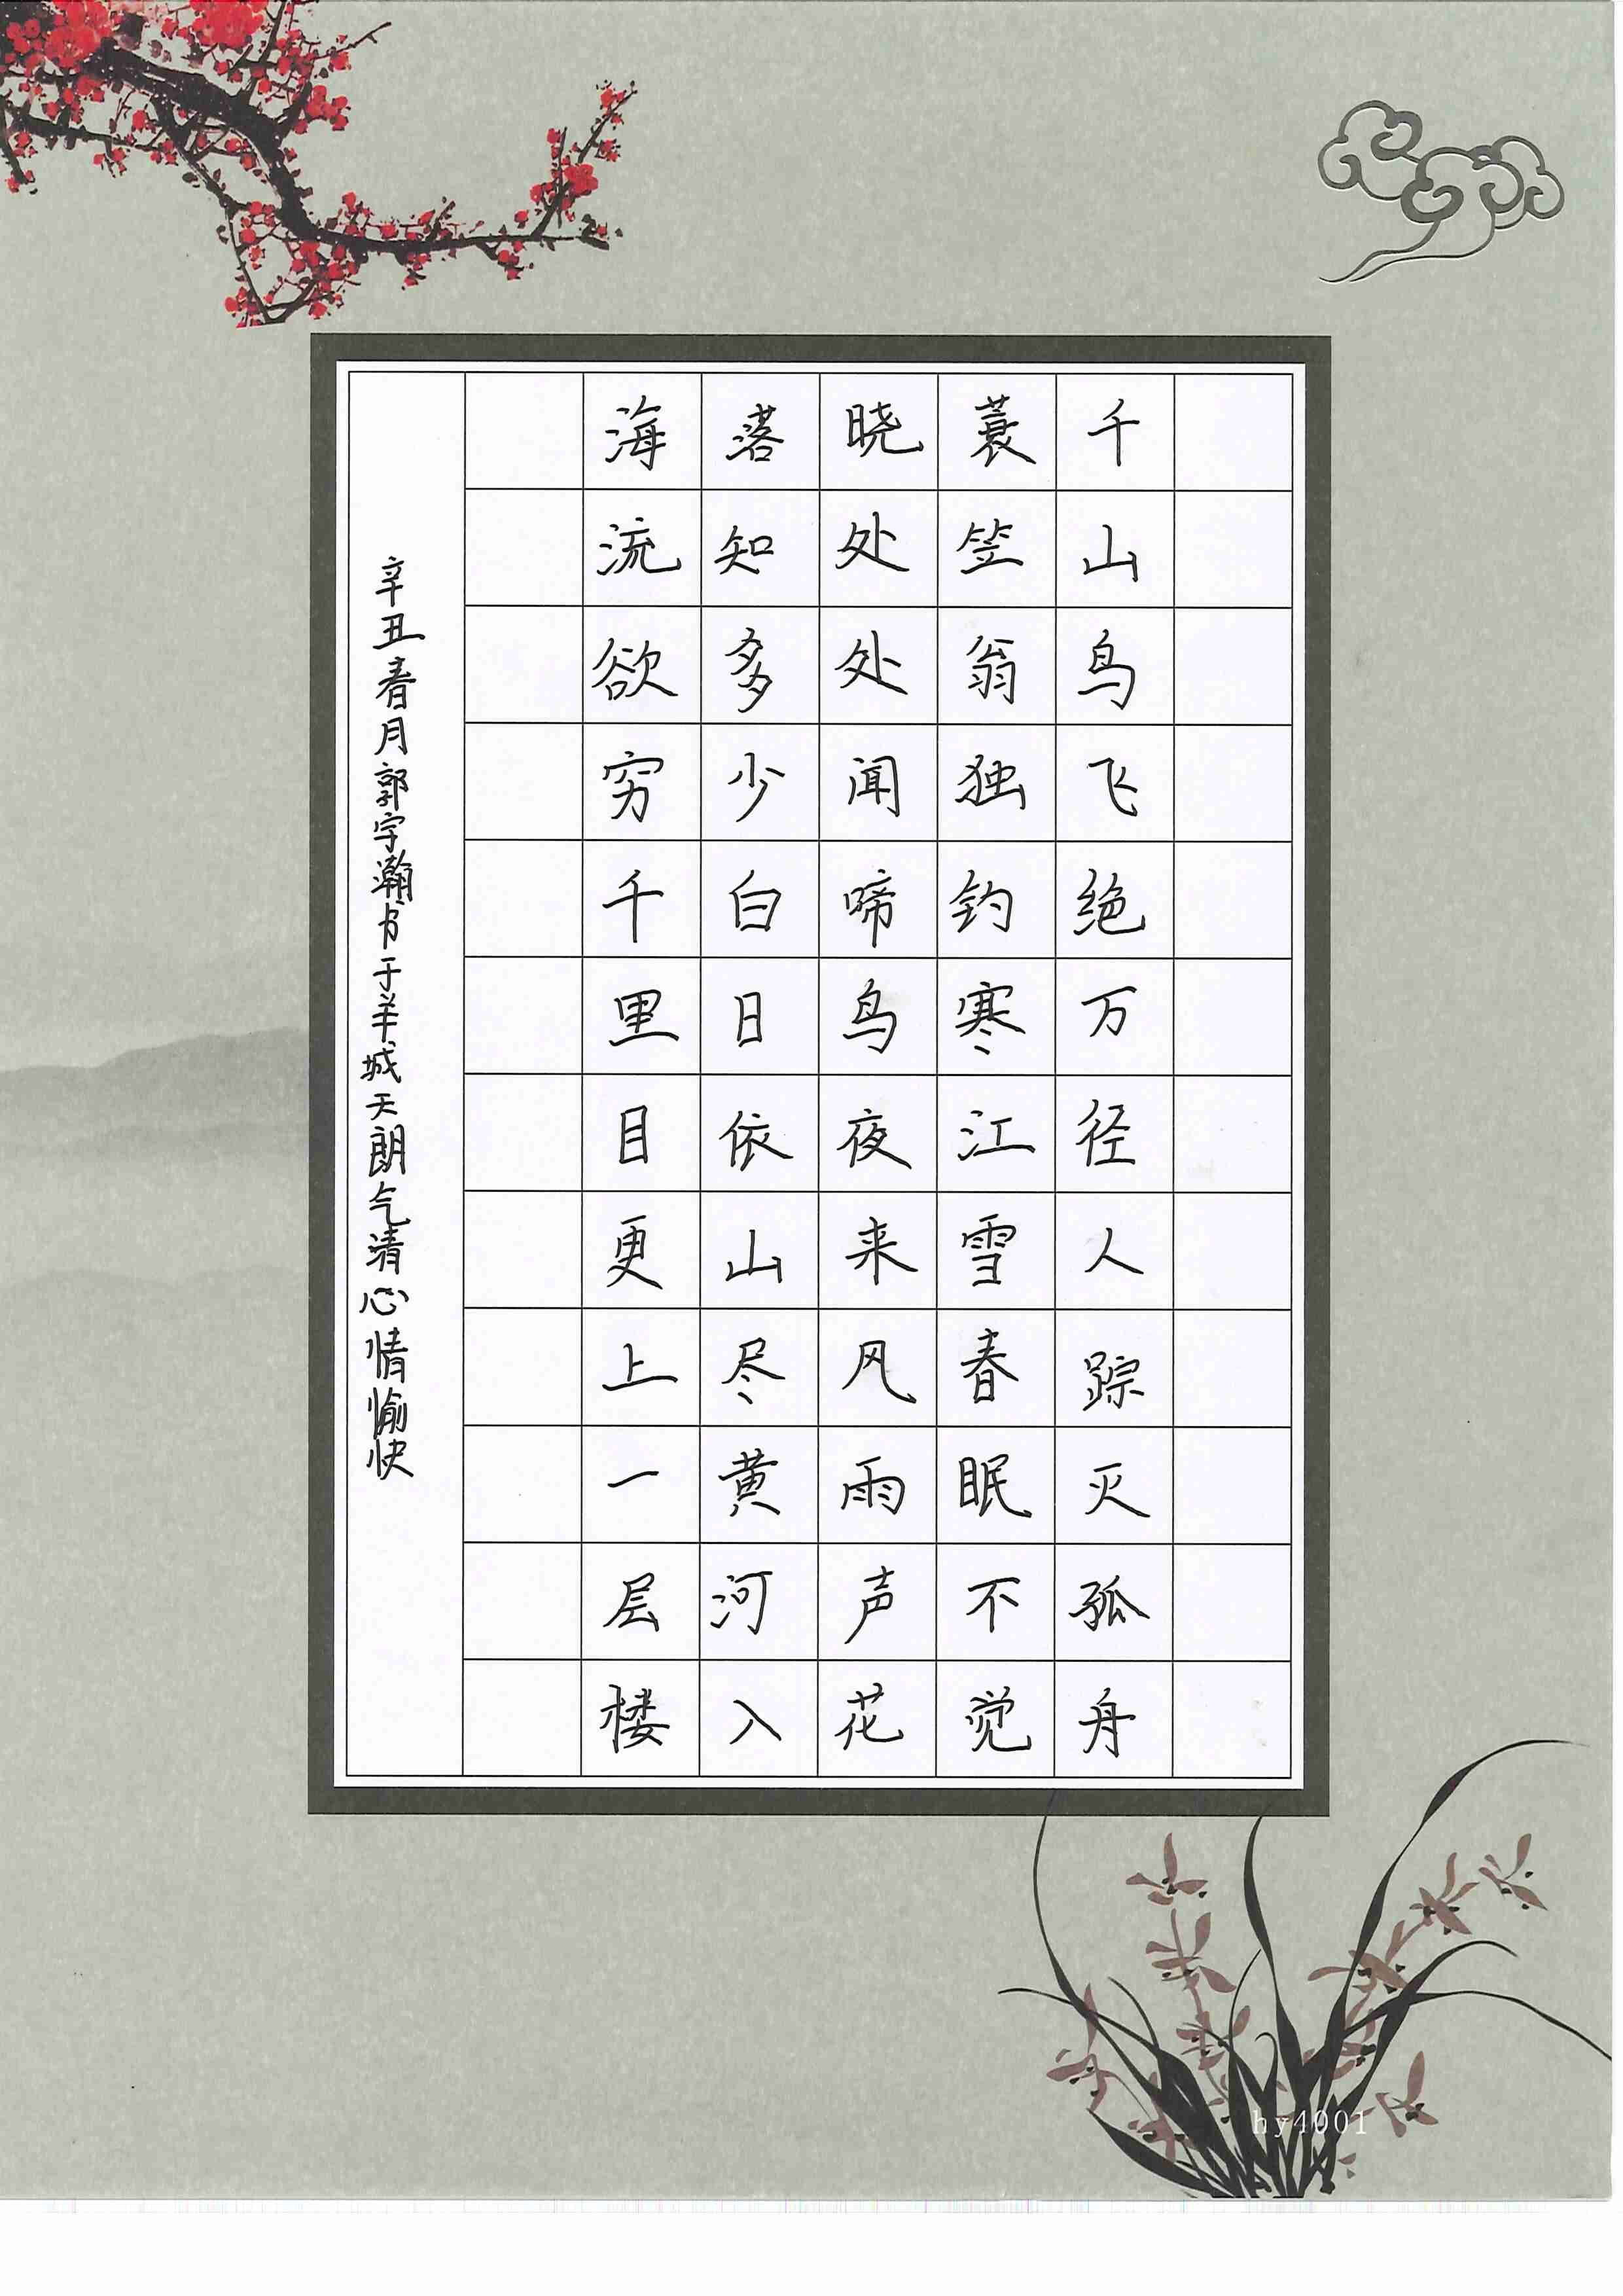 千山鸟飞绝万径人踪灭孤舟
蓑笠翁独钓寒江雪春眠不觉
晓处处闻啼鸟夜来风雨声花
落知多少白日依山尽黄河入
海流欲穷千里目更上一层楼
辛丑春月郭宇瀚书于羊城天朗气清心情愉快
hy4001